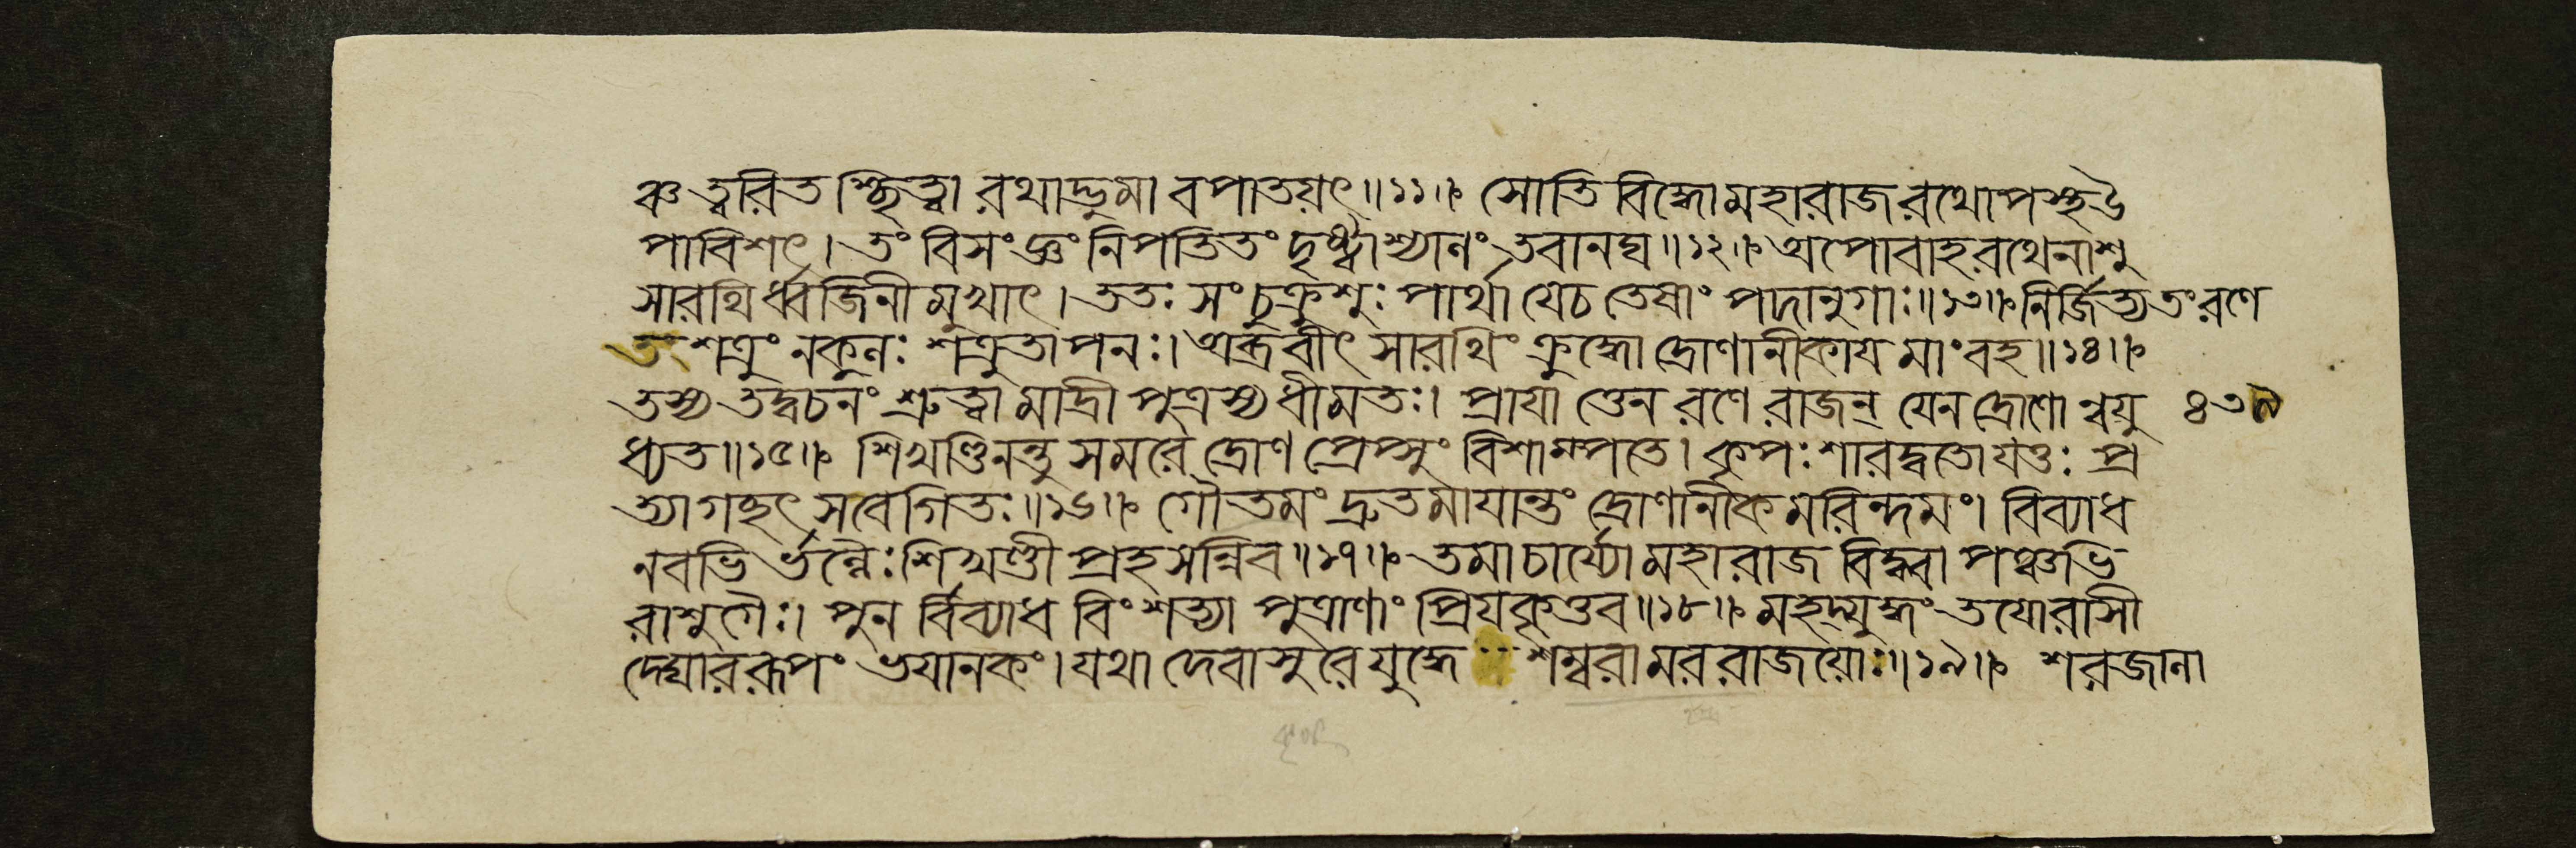 ঞ্চ ত্বরিত শ্ছিত্বা রথাদ্ভুমা বপাতয়ৎ॥১১॥ সোতি বিদ্ধো মহারাজ রথোপস্থ উ
পাবিশৎ। তং বিসংজ্ঞং নিপতিতং দৃষ্ট্বা শ্যালং তবানঘ॥১২॥ অপোবাহ রথেনাশু
সারথি র্ধ্বজিনী মুখাৎ। ততঃ সংচুক্রুশুঃ পার্থা যেচ তেষাং পদানুগাঃ॥১৩॥ নির্জিত্য তং রণে
শত্রুং নকুলঃ শত্রুতাপনঃ। অব্রবীৎ সারথিং ক্রুদ্ধো দ্রোণানীকায় মাং বহ॥১৪॥
তস্য তদ্বচনং শ্রুত্বা মাদ্রী পুত্রস্য ধীমতঃ। প্রায়া ত্তেন রণে রাজন্ যেন দ্রোণো ন্বযু
ধ্যত॥১৫॥ শিখণ্ডিনন্তু সমরে দ্রোণ প্রেপ্সুং বিশাম্পতে। কৃপঃ শারদ্বতো যত্তঃ প্র
ত্যাগচ্ছৎ সবেগিতঃ॥১৬॥ গৌতমং দ্রুতমায়ান্তং দ্রোণানীকমরিন্দমং। বিব্যাধ
নবভি র্ভল্লৈঃ শিখণ্ডী প্রহসন্নিব॥১৭॥ তমাচার্য্যো মহারাজ বিদ্ধ্বা পঞ্চভি
রাশুগৈঃ। পুন র্বিব্যাধ বিংশত্যা পুত্রাণাং প্রিয়কৃত্তব॥১৮॥ মহদ্যুদ্ধং তয়োরাসী
দ্ঘোররূপং ভয়ানকং। যথা দেবাসুরে যুদ্ধে শম্বরামররাজয়োঃ॥১৯॥ শরজালা